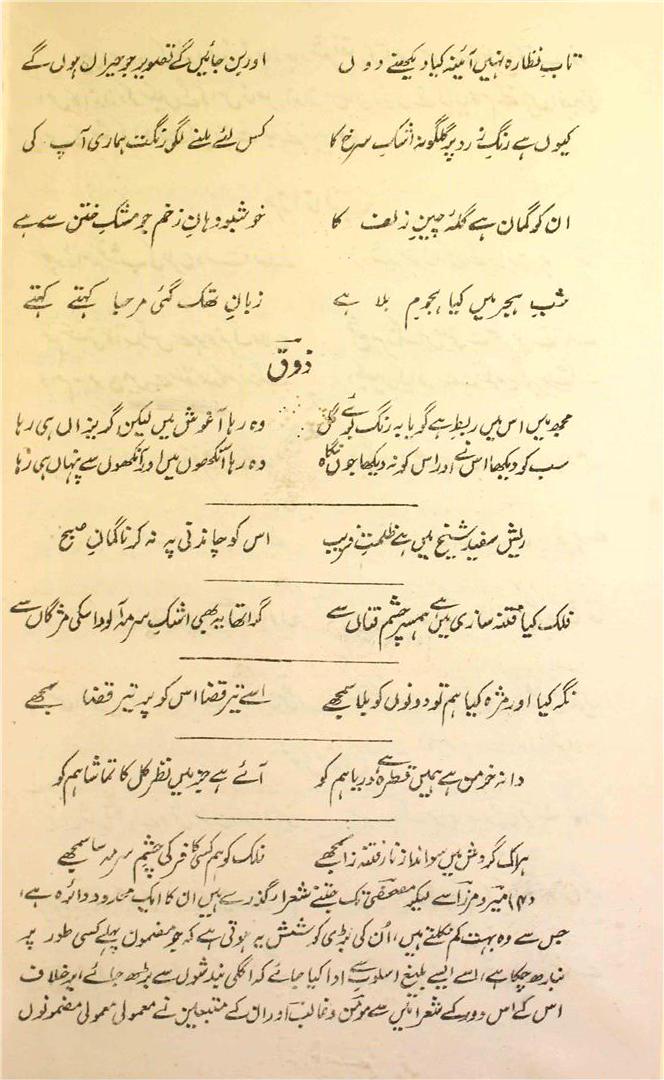 تاب نظارہ نہیں آئینہ کیا دیکھنے دوں اور بن جائیں گے تصویر جو حیراں ہوں گے
کیوں ہے رنگِ زرد پر گلگونہ اشکِ سرخ کا کس لئے ملنے لگی رنگت ہماری آپ کی
ان کو گمان ہے گلۂ چینِ زلف کا خوشبو دہانِ زخم جو مشکِ ختن سے ہے
شبِ ہجر میں کیا ہجومِ بلا ہے زبان تھک گئی مرحبا کہتے کہتے
ذوق
مجھ میں اس میں ربط ہے گویا بہ رنگ بوئے گل وہ رہا آغوش میں لیکن گریزاں ہی رہا
سب کو دیکھا اس نے اور اس کو نہ دیکھا جوں نگاہ وہ رہا آنکھوں میں اور آنکھوں سے پنہاں ہی رہا
ریش سفید شیخ میں ہے ظلمتِ فریب اس کو چاندنی پہ نہ کرنا گمانِ صبح
فلک کیا فتنہ سازی میں ہے ہمسر چشم فتاں سے گرا تھا یہ بھی اشک سرمہ آلود اسکی مژگاں سے
نگہ کیا اور مژہ کیا ہم تو دونوں کو بلا سمجھے اسے تیر قضا اس کو پر تیر قضا سمجھے
دانہ خرمن ہے ہمیں قطرہ ہے دریا ہم کو آئے ہے جز میں نظر کل کا تماشا ہم کو
ہر اک گردش میں سو انداز ناز فتنہ زا سمجھے فلک کو ہم کسی کافر کی چشم سرمہ سا سمجھے
(۲) میر و مرزا سے لیکر مصحفی تک جتنے شعرا گذرے ہیں ان کا ایک محدود دائرہ ہے،
جس سے وہ بہت کم نکلتے ہیں، اُن کی بڑی کوشش یہ ہوتی ہے کہ جو مضمون پہلے کسی طور پر
بندھ چکا ہے، اسے ایسے بلیغ اسلوب سے ادا کیا جائے کہ اگلی بندشوں سے بڑھ جائے، برخلاف
اس کے اس دور کے شعرا میں سے مومن و غالب اور ان کے متبعین نے معمولی معمولی مضمونوں